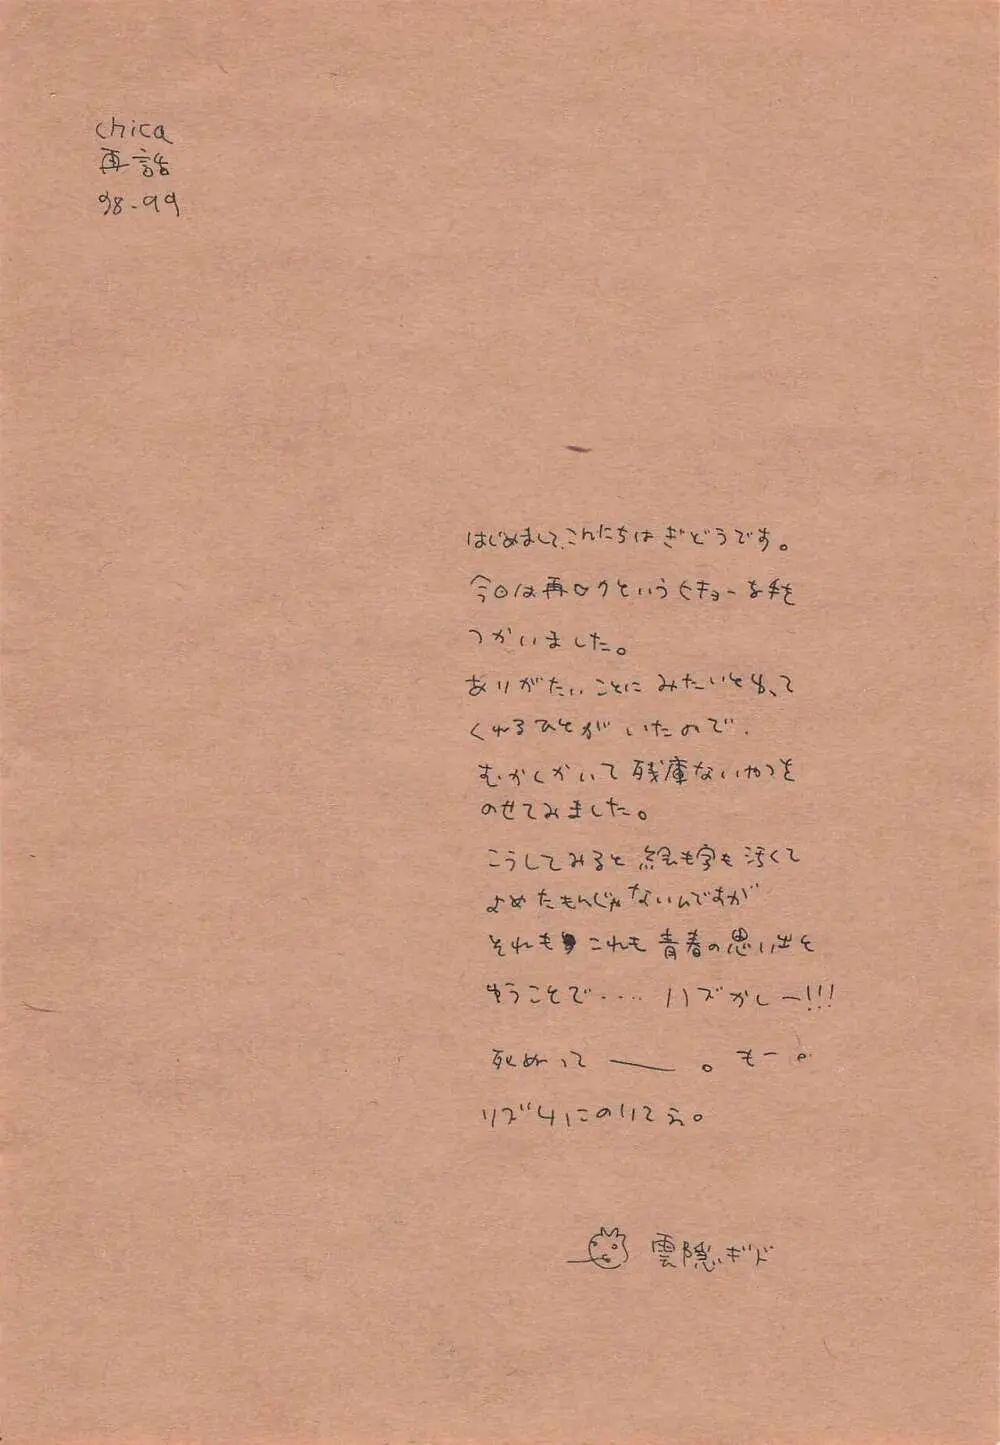 chica
再話
98-99
はじめまして、こんにちは ぎどうです。
今回は再ロクというヒキョーな手を
つかいました。
ありがたいことに みたいと思って
くれるひとが いたので、
むかしかいて 残庫ないやつを
のせてみました。
こうしてみると 絵も字も 汚くて
よめたもんじゃないんですが
それも これも 青春の思い出と
ゆうことで‥‥ ハズかしー!!!
死ぬって ――。 もー。
リズムにのりてえ。
雲隠ギド